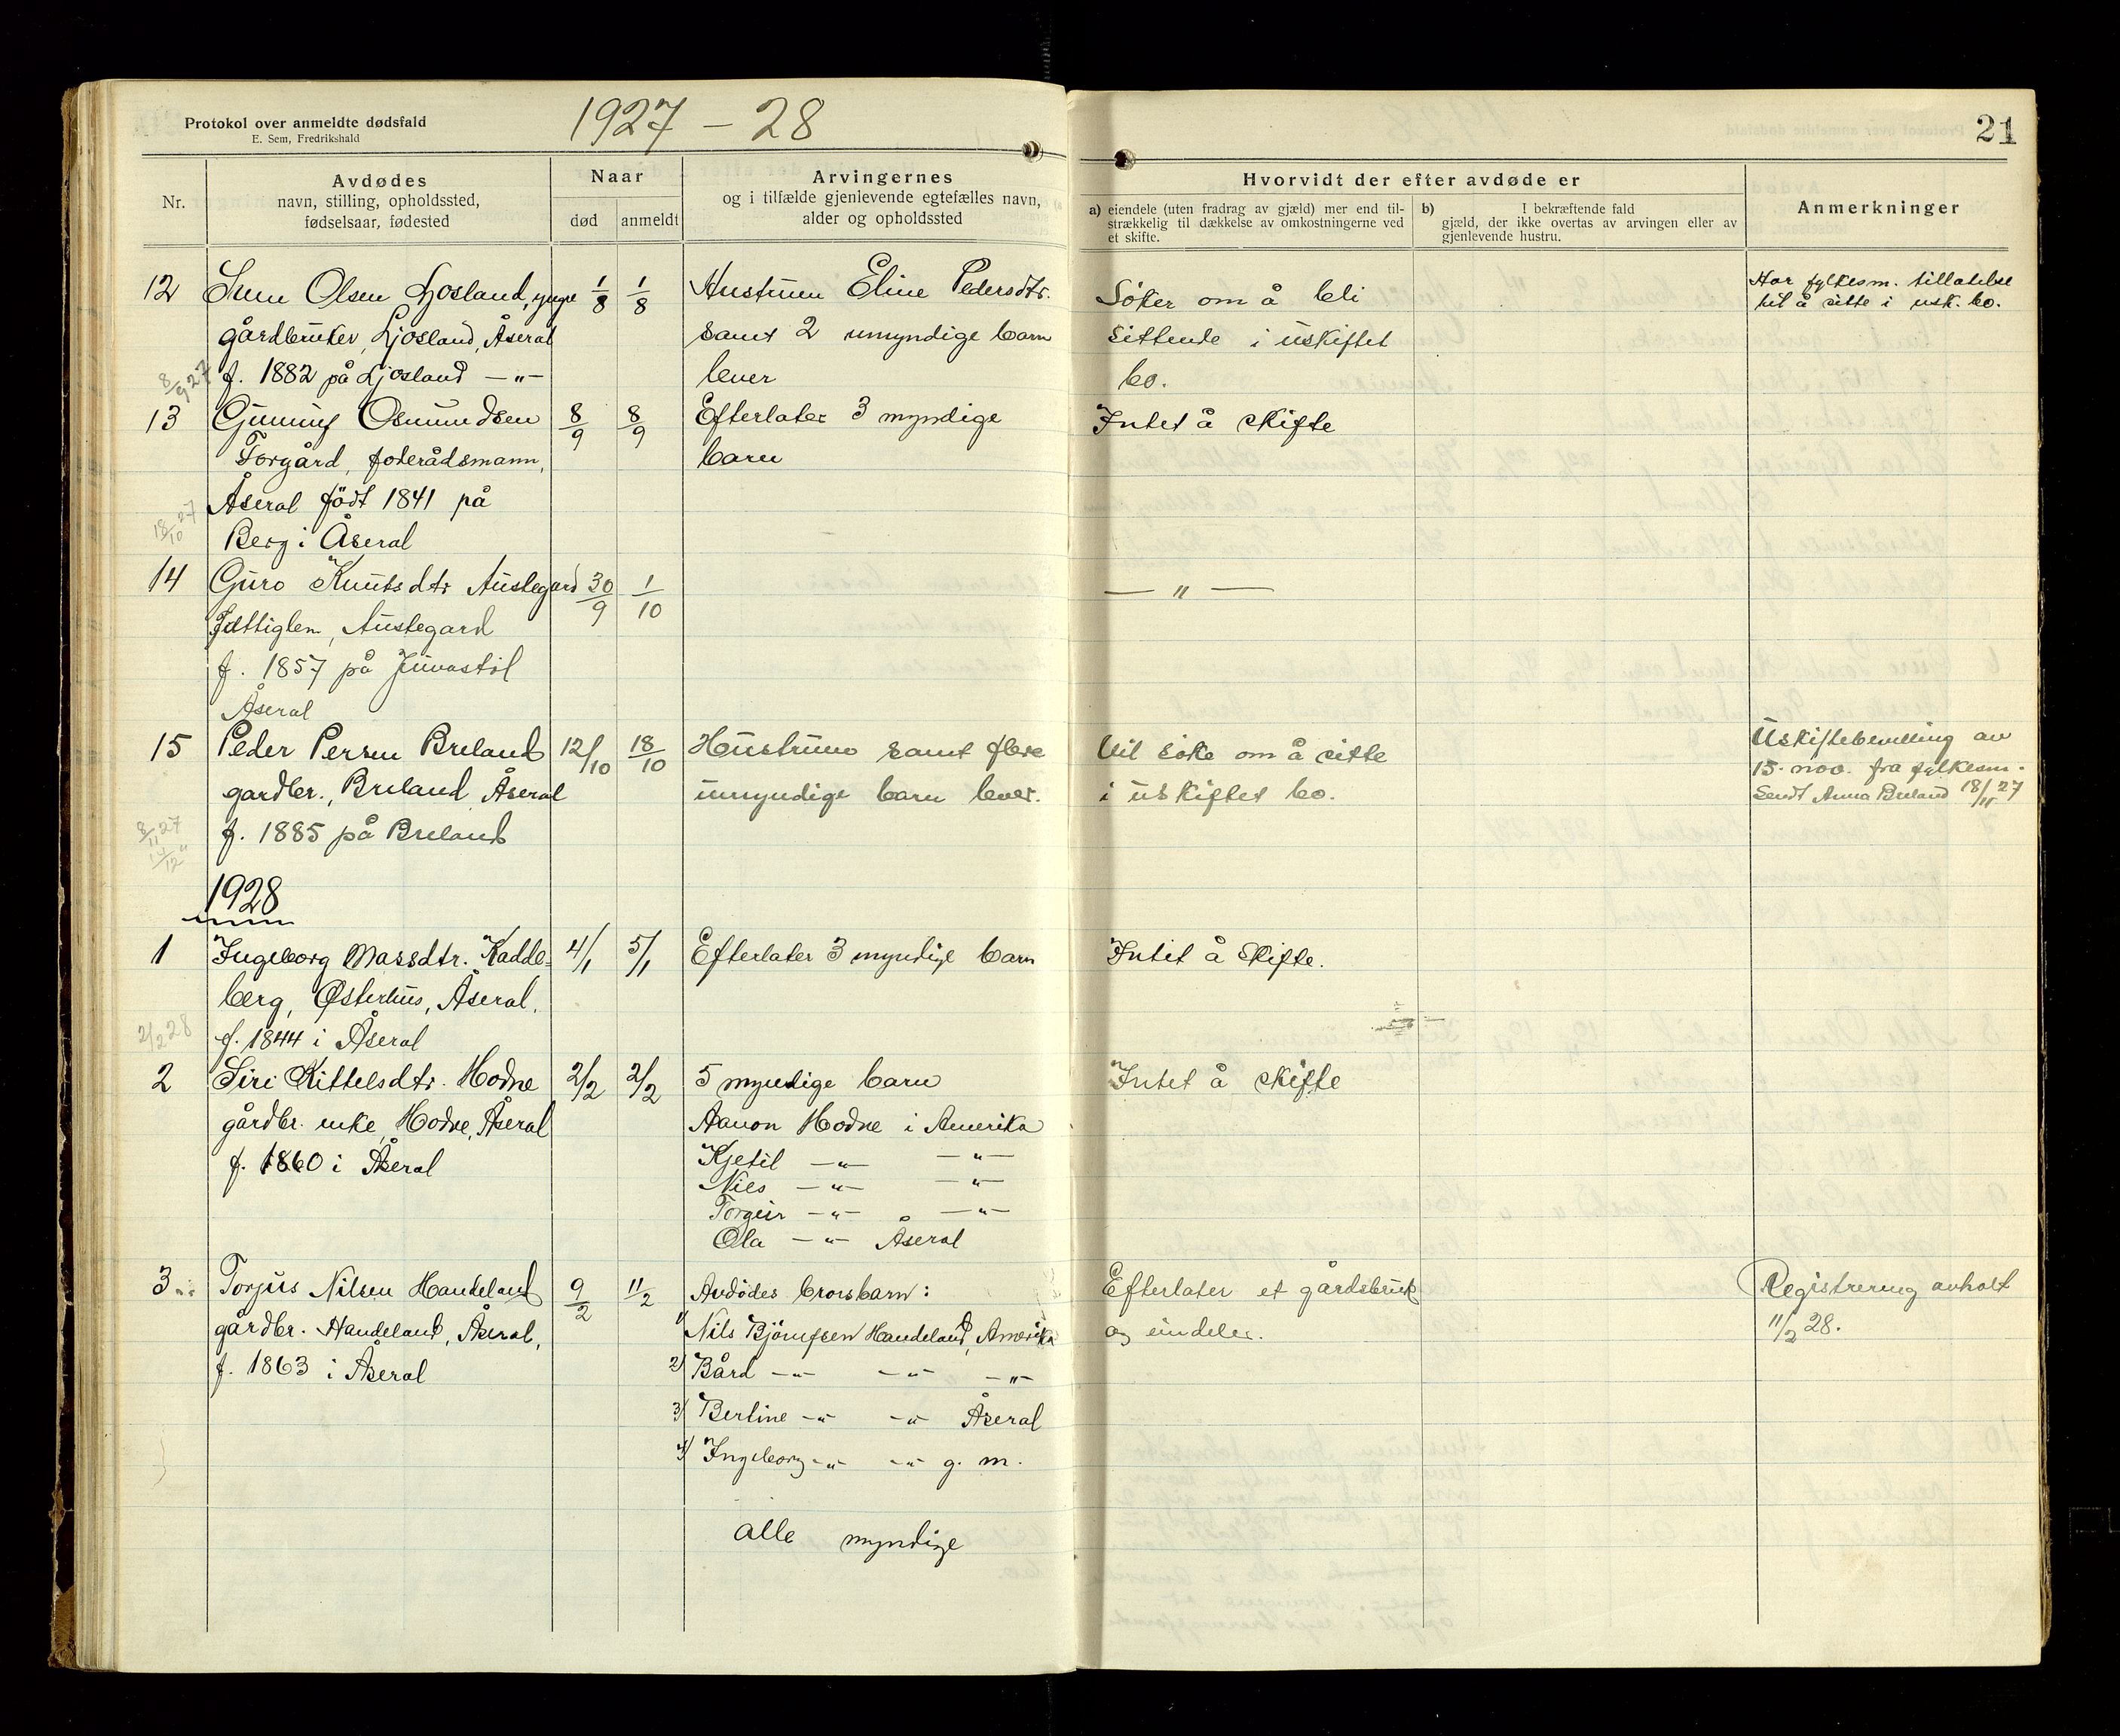 Protokol over anmeldte dødsfald
E. Sem, Fredrikshald
1927 - 28
21
Nr.
Avdødes
navn, stilling, opholdssted,
fødselsaar, fødested
Naar
død
anmeldt
Arvingernes
og i tilfælde gjenlevende egtefælles navn,
alder og opholdssted
Hvorvidt der efter avdøde er
a) eiendele (uten fradrag av gjæld) mer end til-
strækkelig til dækkelse av omkostningerne ved
et skifte.
b) I bekræftende fald
gjæld, der ikke overtas av arvingen eller av
gjenlevende hustru.
Anmerkninger
12
Olsen Ljosland, yngre
gårdbruker, Ljosland, Åseral
f. 1882 på Ljosland -"-
8/9 27
1/8
1/8
Hustruen Eline Pedersdtr.
samt 2 umyndige barn
lever
Søker om å bli
sittende i uskiftet
bo.
Har fylkesm. tillatelse
til å sitte i usk. bo.
13
Gunuf Osmundsen
Torgård, foderådsmann,
Åseral födt 1841 på
Berg i Åseral
18/10 27
8/9
8/9
Efterlater 3 myndige
barn
Intet å skifte
14
Guro Knutsdtr Austegard
Fattiglem, Austegard
f. 1857 på Juvastöl
Åseral
30/9
1/10
- " -
15
Peder Persen Breland
gardbr., Breland Åseral
f. 1885 på Breland
8/11 27
14/12 "
12/10
18/10
Hustruen samt flere
umyndige barn lever.
Vil söke om å sitte
i uskiftet bo.
Uskiftebevilling av
15. nov. fra fylkesm.
Sendt Anna Breland 18/11 27
1928
1
Ingeborg Massdtr. Kadde=
berg, Østerhus, Åseral.
f. 1844 i Åseral
2/2 28
4/1
5/1
Efterlater 3 myndige barn
Intet å skifte.
2
Siri Kittelsdtr. Hodne
gårdbr. enke, Hodne, Åseral
f. 1860 i Åseral
2/2
2/2
5 myndige barn
Aanon Hodne i Amerika
Kjetil -"- -"-
Nils -"- -"-
Torgeir -"- -"-
Ola -"- Åseral
Intet å skifte
3
Torjus Nilsen Handeland
gårdbr. Handeland, Åseral,
f. 1863 i Åseral
9/2
11/2
Avdødes brorsbarn:
1) Nils Björnufsen Handeland, Amerika
2) Bård -"- -"- -"-
3) Berline -"- -"- Åseral
4) Ingeborg -"- -"- g. m.
alle myndige
Efterlater et gårdsbruk
og eindeler.
Registrering avholt
11/2 28.